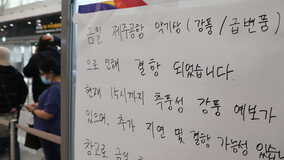 금일 제주공항 악기상 (강풍/급변풍)
으로 인해 결항 되었습니다.
현재 15시까지 측풍성 강풍 예보가
있으며, 추가 지연 및 결항 가능성 있습
참고로 금일